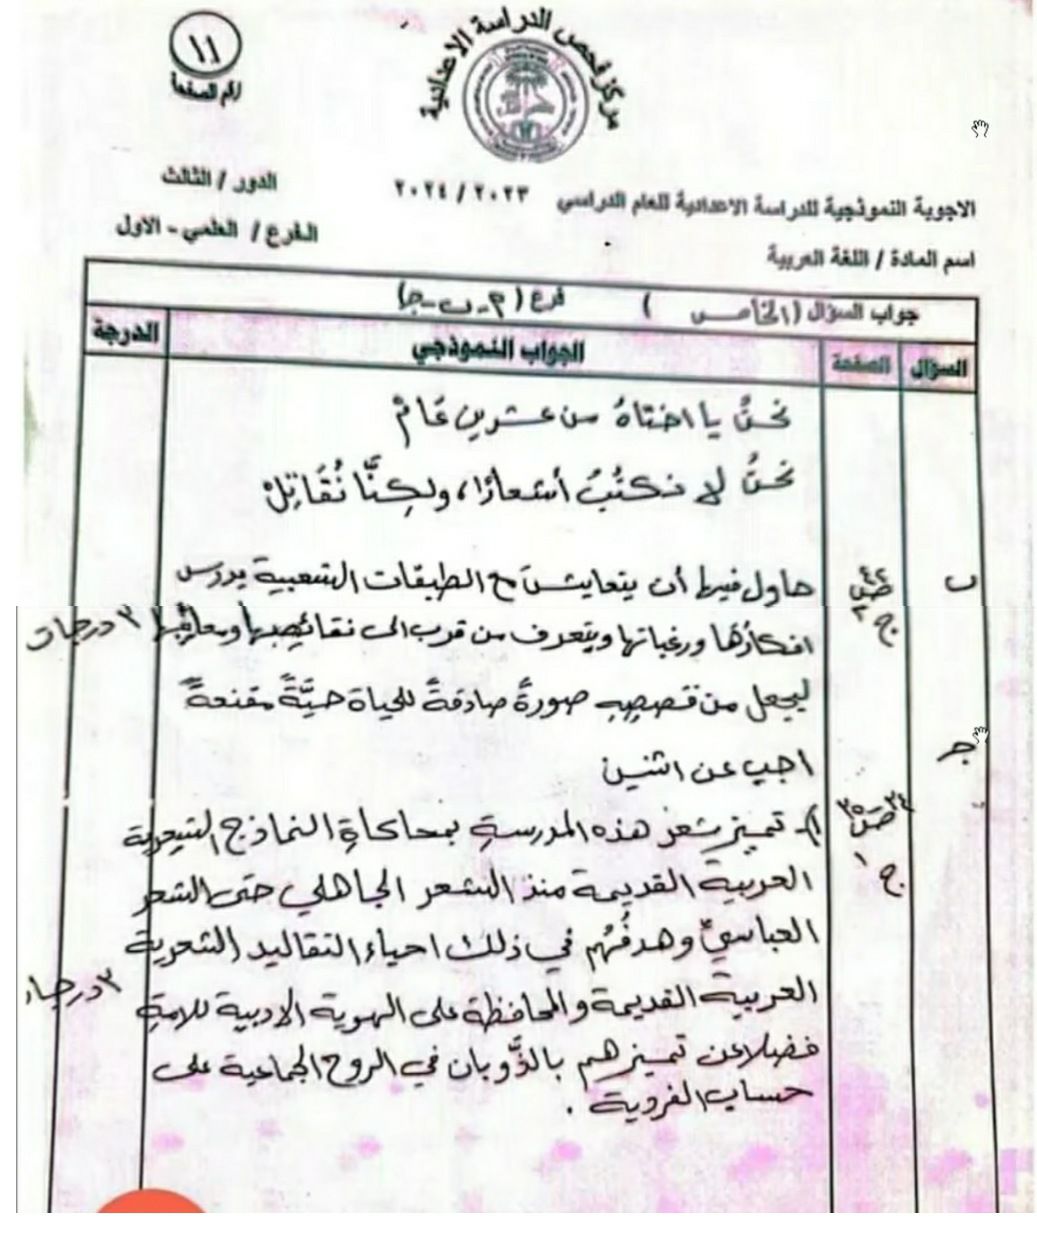 ١١
رقم الصفحة
مركز فحص الدراسة الاعدادية
الدور / الثالث
الاجوبة النموذجية للدراسة الاعدادية للعام الدراسي ٢٠٢٣ / ٢٠٢٤
الفرع / العلمي - الاول
اسم المادة / اللغة العربية
جواب السؤال (الخامس) فرع (أ-ب-ج)
السؤال الصفحة الجواب النموذجي الدرجة
نحنُ يا اختاهُ من عشرين عَامْ
نحنُ لا نكتبُ أشعارًا، ولكِنَّا نُقَاتِلْ
ب ص٤٢ حاول فيها أن يتعايش مع الطبقات الشعبية يدرس
ج٢ افكارها ورغباتها ويتعرف من قرب الى نقائصها ومعايبها ٣ درجات
ليجعل من قصصِهِ صورةً صادقةً للحياة حيَّةً مقنعةً
ج اجب عن اثنين
ص٣٤ ٣٥ ١- تميز شعر هذه المدرسةِ بمحاكاةِ النماذج الشعرية
ج١ العربية القديمة منذ الشعر الجاهلي حتى الشعر
العباسي وهدفُهم في ذلك احياء التقاليد الشعرية
العربية القديمة والمحافظة على الهوية الادبية للامةِ ٣ درجات
فضلا عن تميزهم بالذَّوبان في الروح الجماعية على
حساب الفردية .